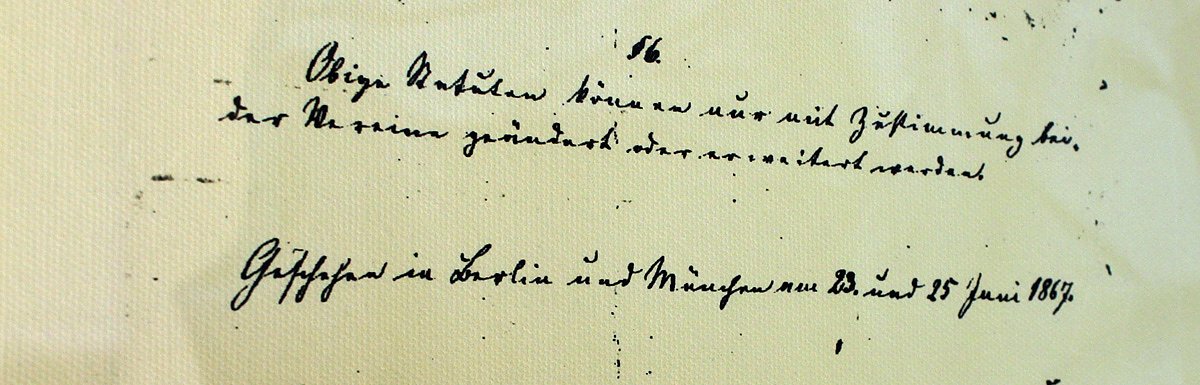 §6.
Obige Statuten können nur mit Zustimmung bei-
der Vereine geändert oder erweitert werden.
Geschehen in Berlin und München am 23. und 25 Juni 1867.